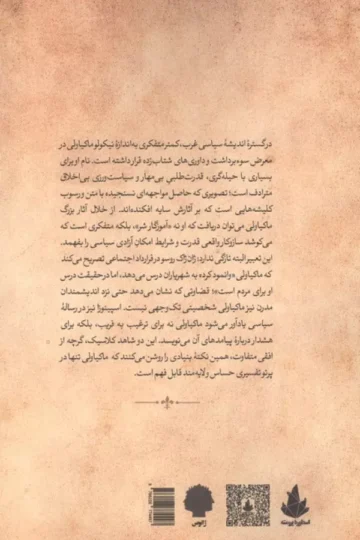 در گسترهٔ اندیشهٔ سیاسی غرب، کمتر متفکری به‌اندازهٔ نیکولو ماکیاولی در
معرض سوءبرداشت و داوری‌های شتاب‌زده قرار داشته است. نام او برای
بسیاری با حیله‌گری، قدرت‌طلبیِ بی‌مهار و سیاست‌ورزیِ بی‌اخلاق
مترادف است؛ تصویری که حاصل مواجهه‌ای نسنجیده با متن و رسوب
کلیشه‌هایی است که بر آثارش سایه افکنده‌اند. از خلال آثار بزرگ
ماکیاولی می‌توان دریافت که او نه «آموزگار شر»، بلکه متفکری است که
می‌کوشد سازوکار واقعی قدرت و شرایط امکانِ آزادی سیاسی را بفهمد.
این تعبیر البته تازگی ندارد: ژان‌ژاک روسو در قرارداد اجتماعی تصریح می‌کند
که ماکیاولی «وانمود کرده به شهریاران درس می‌دهد، اما در حقیقت درس
او برای مردم است»؛ قضاوتی که نشان می‌دهد حتی نزد اندیشمندان
مدرن نیز ماکیاولی شخصیتی تک‌وجهی نیست. اسپینوزا نیز در رسالهٔ
سیاسی یادآور می‌شود ماکیاولی نه برای ترغیب به فریب، بلکه برای
هشدار دربارهٔ پیامدهای آن می‌نویسد. این دو شاهد کلاسیک، گرچه از
افقی متفاوت، همین نکتهٔ بنیادی را روشن می‌کنند که ماکیاولی تنها در
پرتو تفسیری حساس و لایه‌مند قابل فهم است.
ژانوس